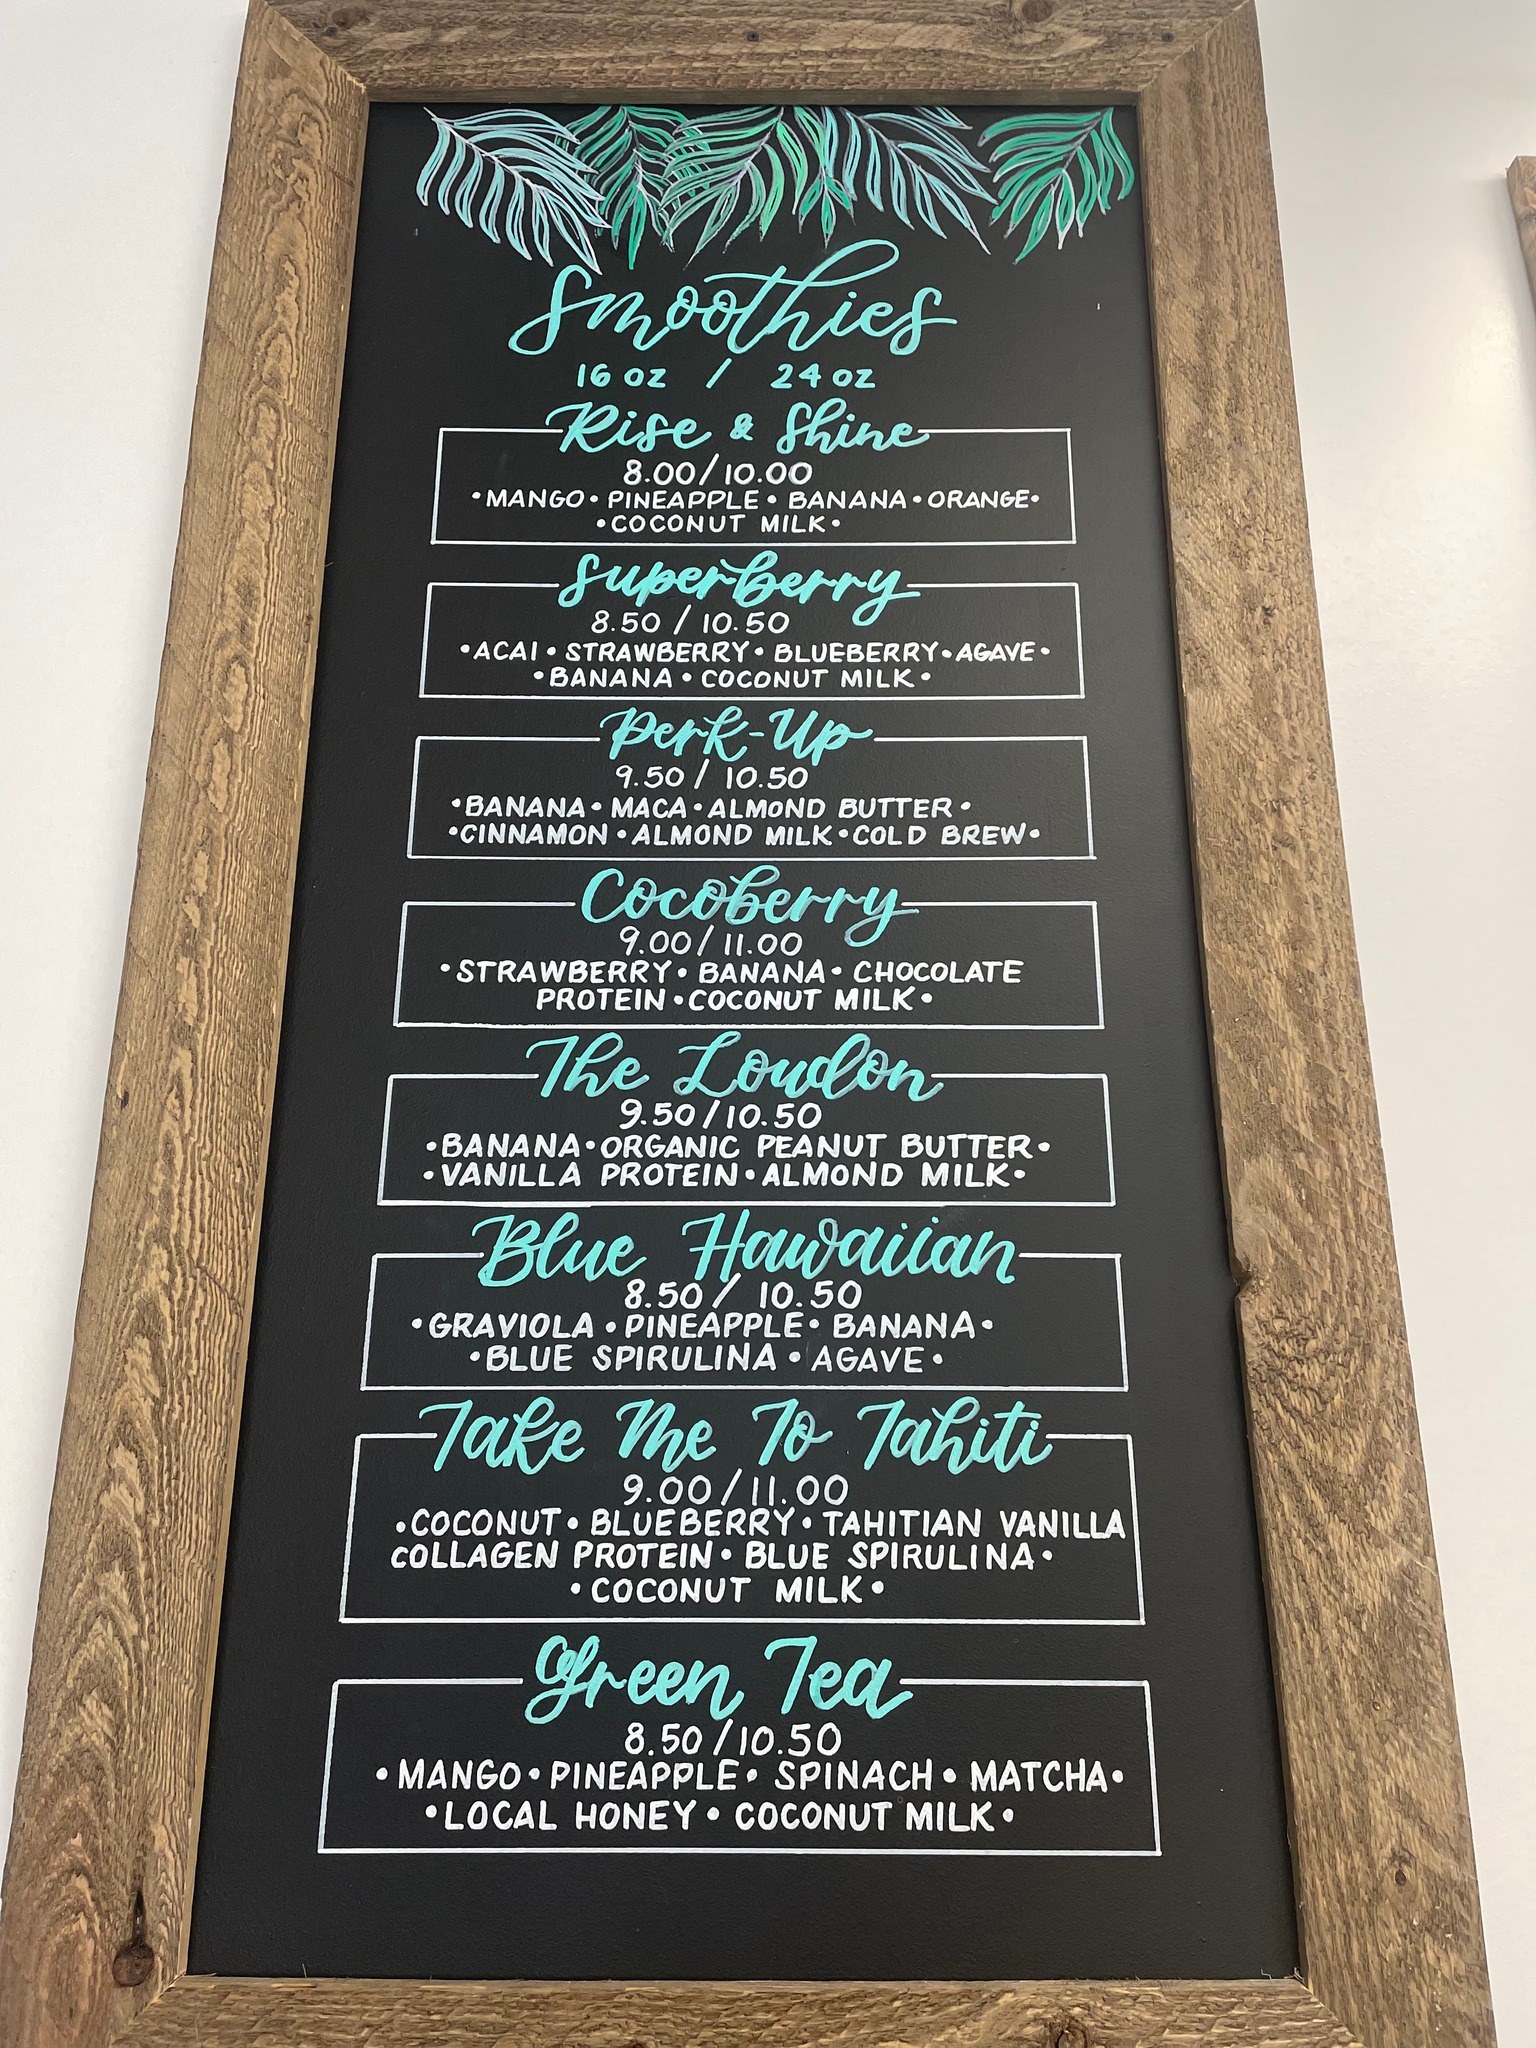 Smoothies
16 oz / 24 oz
Rise & Shine
8.00/10.00
•MANGO• PINEAPPLE • BANANA•ORANGE•
•COCONUT MILK•
Superberry
8.50 / 10.50
•ACAI • STRAWBERRY• BLUEBERRY•AGAVE•
•BANANA • COCONUT MILK•
Perk-Up
9.50 / 10.50
•BANANA• MACA•ALMOND BUTTER •
•CINNAMON •ALMOND MILK•COLD BREW•
Cocoberry
9.00/ 11.00
•STRAWBERRY• BANANA• CHOCOLATE
PROTEIN •COCONUT MILK•
The Loudon
9.50/10.50
•BANANA•ORGANIC PEANUT BUTTER•
•VANILLA PROTEIN•ALMOND MILK•
Blue Hawaiian
8.50 / 10.50
•GRAVIOLA •PINEAPPLE• BANANA•
•BLUE SPIRULINA • AGAVE•
Take Me To Tahiti
9.00/11.00
•COCONUT• BLUEBERRY• TAHITIAN VANILLA
COLLAGEN PROTEIN• BLUE SPIRULINA•
•COCONUT MILK•
Green Tea
8.50/10.50
•MANGO•PINEAPPLE• SPINACH• MATCHA•
•LOCAL HONEY• COCONUT MILK•